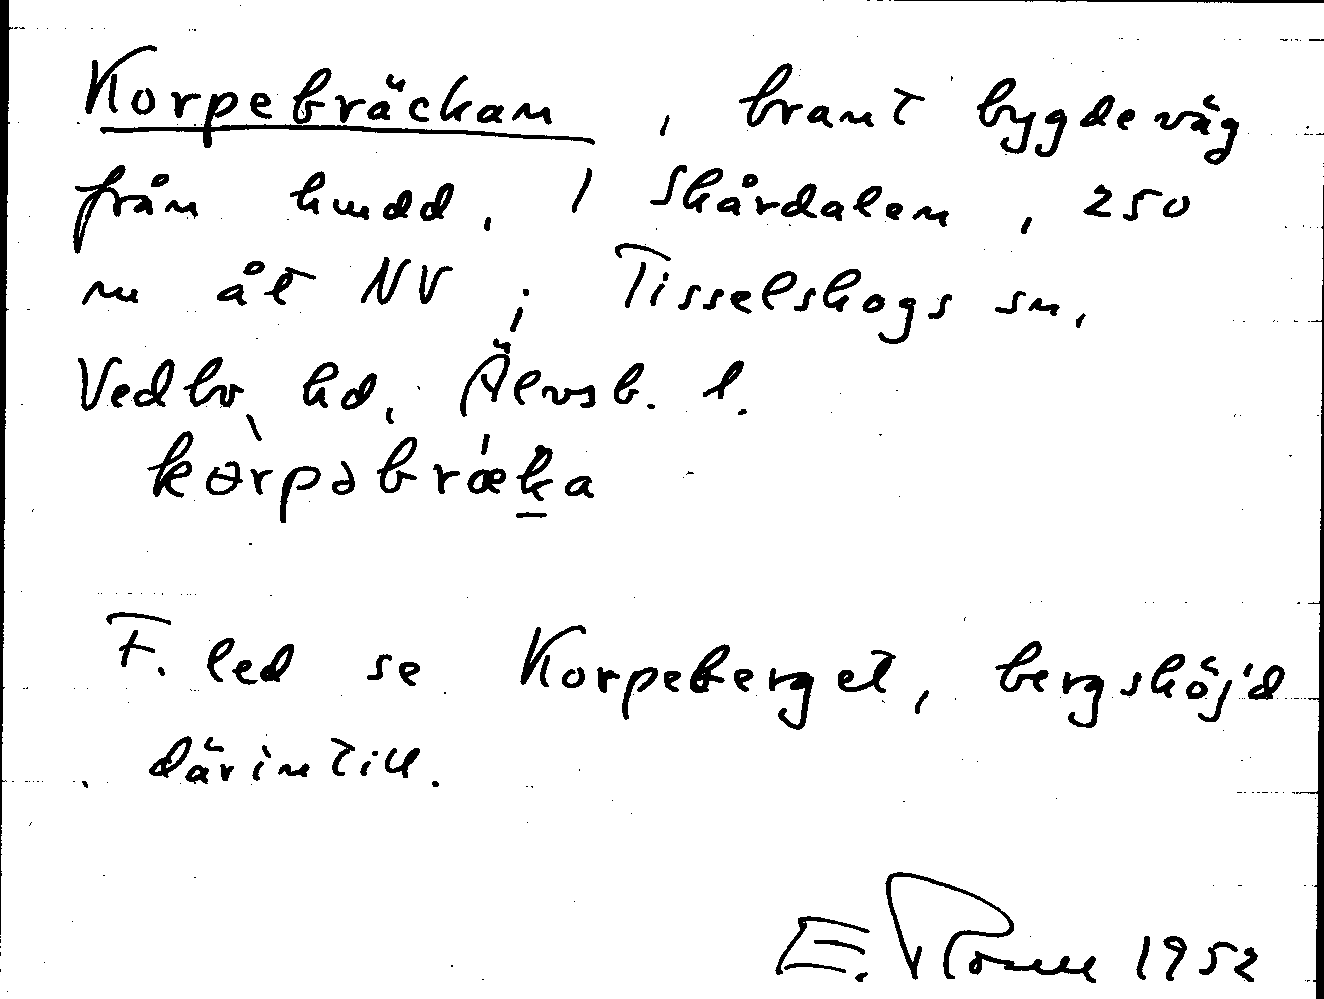 Korpebräckan, brant bygdeväg
från hmdd, 1 Skårdalen, 250
m åt NV; Tisselskogs sn,
Vedbo hd, Älvsb. l.
kɵ̀rpəbrǽk̲a
F. led se Korpeberget, bergshöjd
därintill.
E. 1952